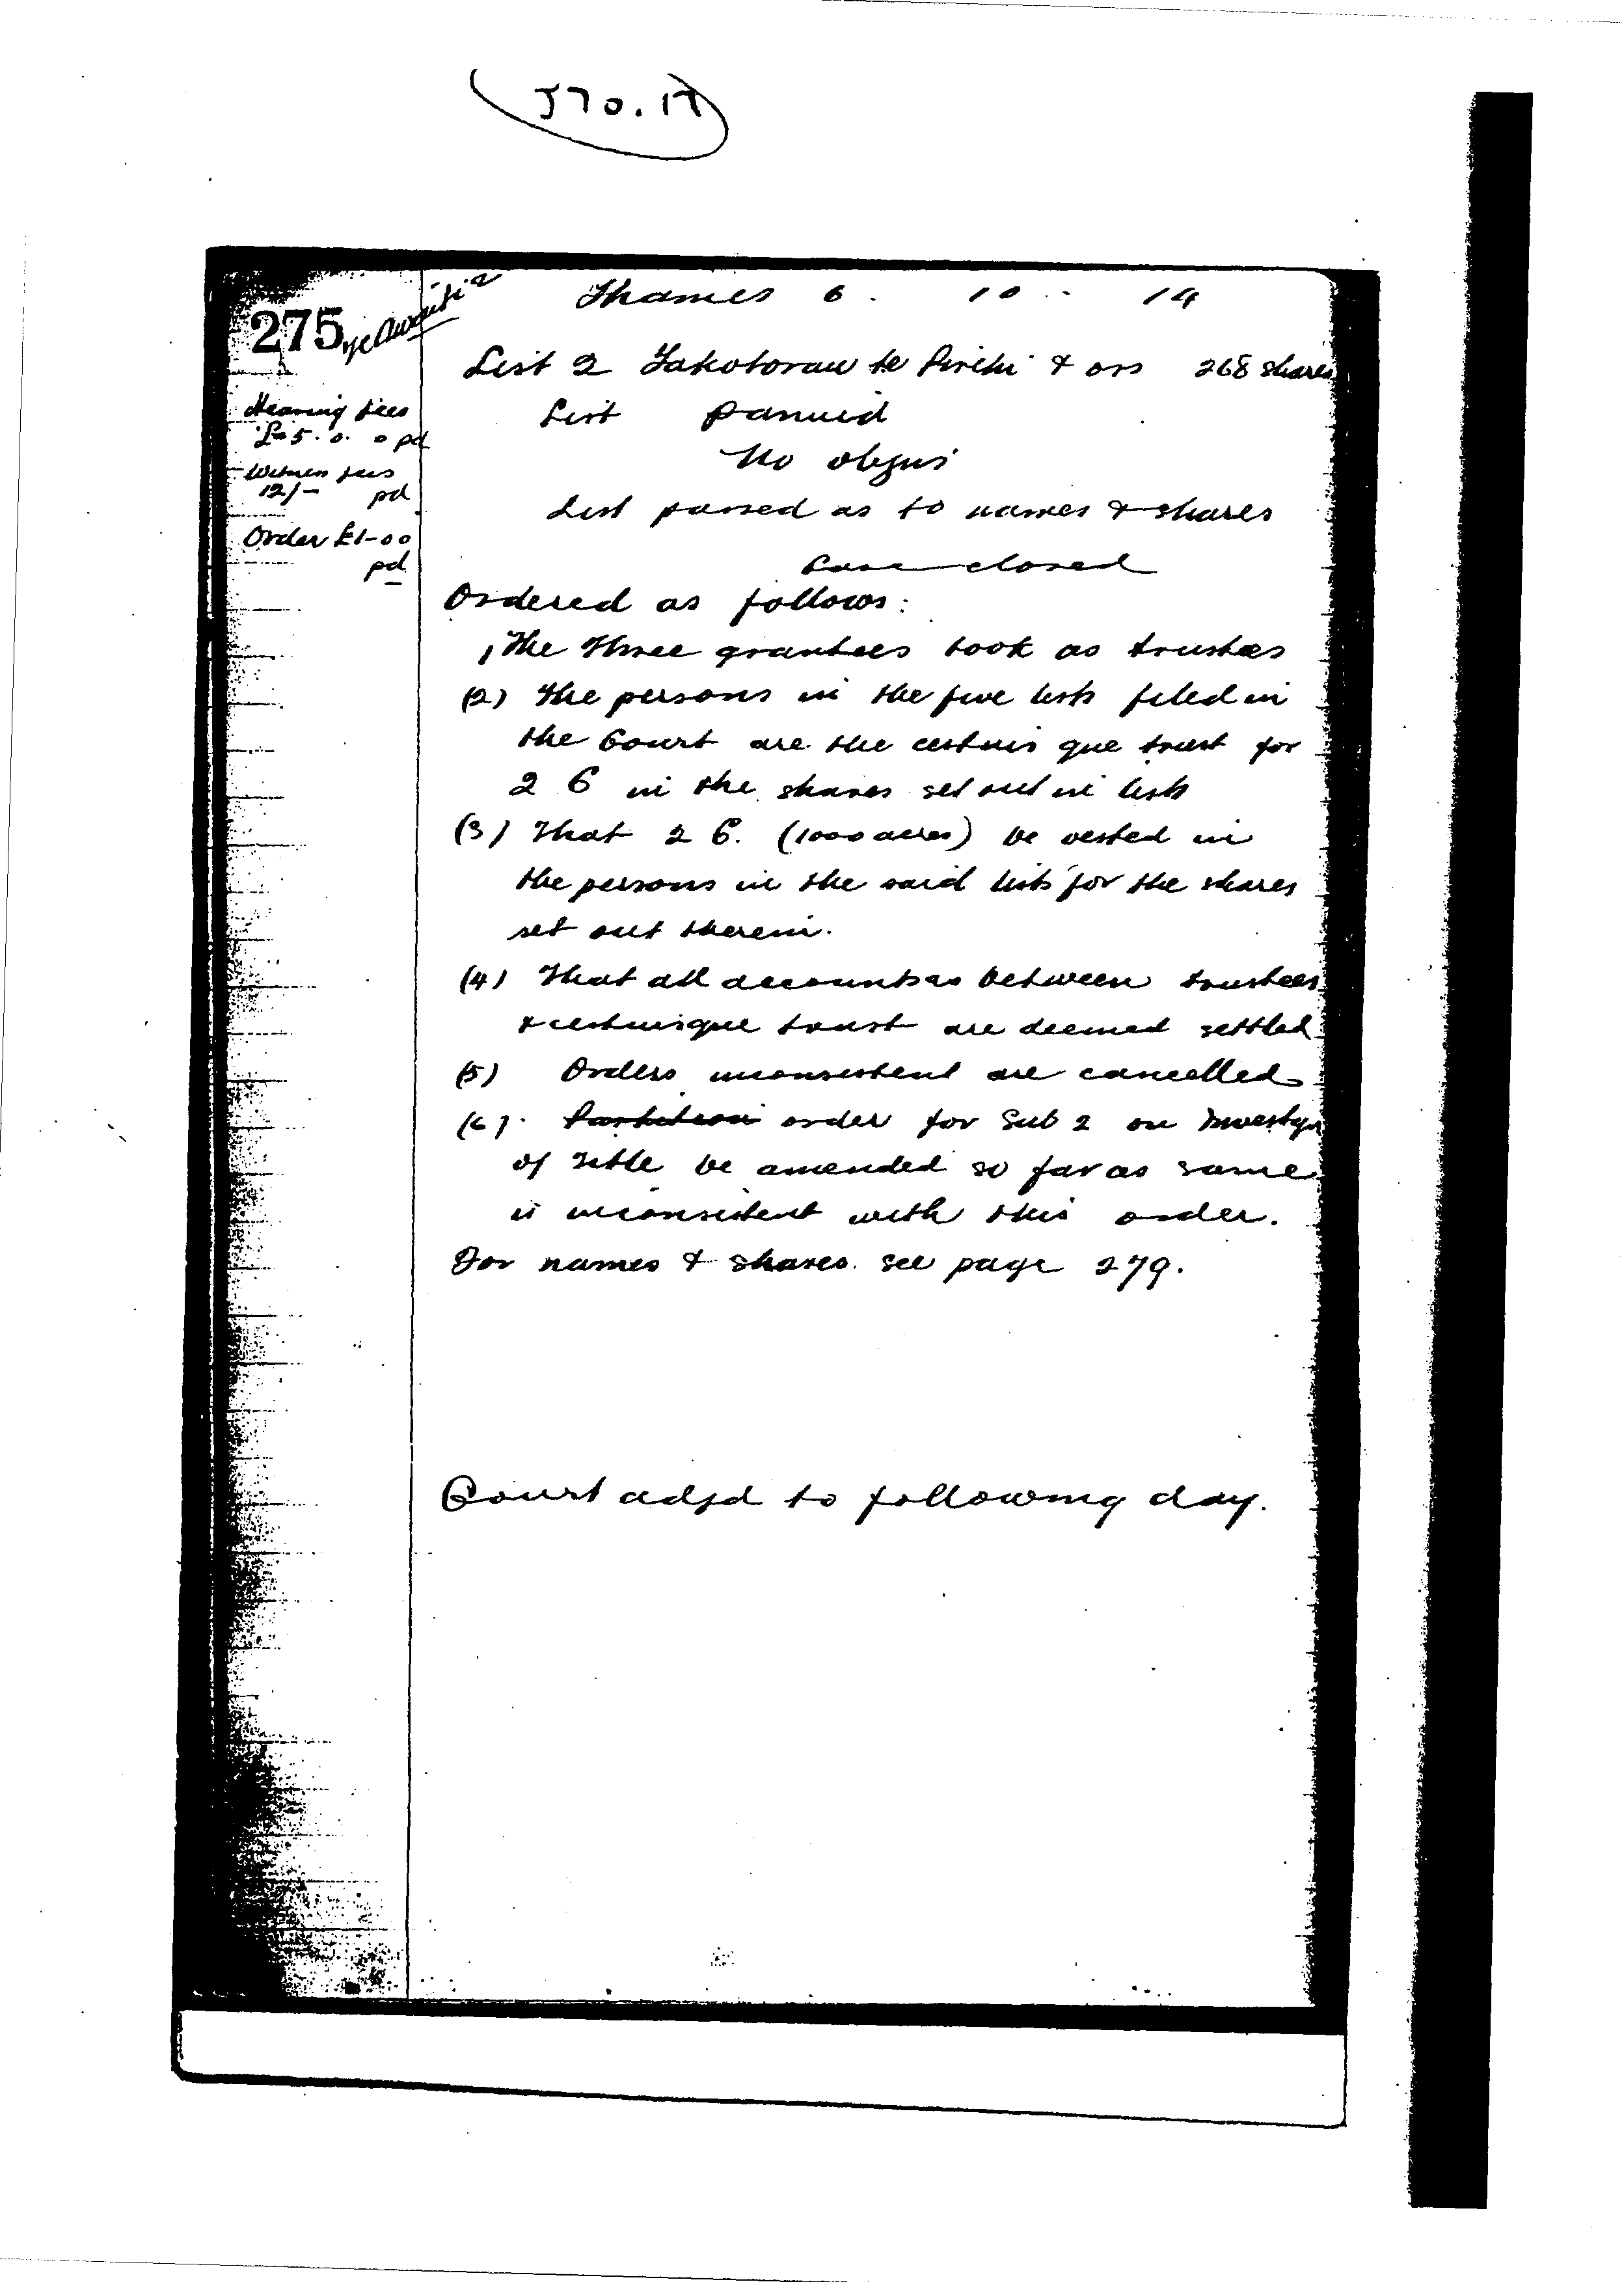 J70.17
275 Te Awaiti 2
Thames 6. 10. 14
List 2 Takotorau te Pirihi & ors 268 shares
Hearing fees
£5.0.0 pd
List panuid
No objns
Witness fees
12/- pd
List passed as to names & shares
Order £1-00
pd
Case closed
Ordered as follows:
1 The three grantees took as trustees
(2) The persons in the five lists filed in
the Court are the cestuis que trust for
2 C in the shares set out in lists
(3) That 2 C. (1000 acres) be vested in
the persons in the said lists for the shares
set out therein.
(4) That all accounts as between trustees
& cestuisque trust are deemed settled
(5) Orders inconsistent are cancelled
(6). Partition order for Sub 2 on Investgn
of Title be amended so far as same
is inconsistent with this order.
For names & shares. see page 279.
Court adjd to following day.